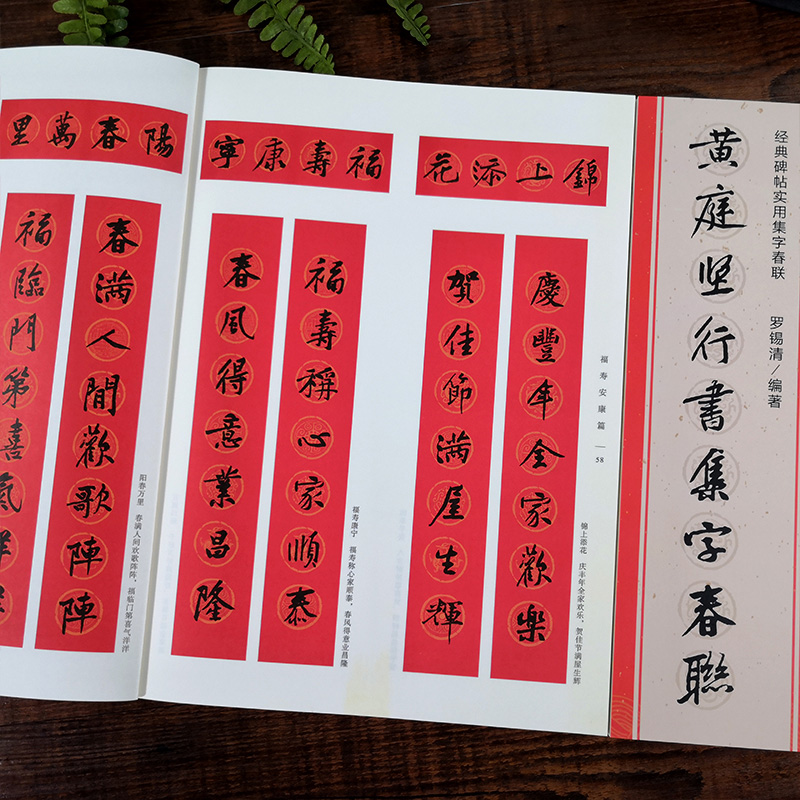 经典碑帖实用集字春联
罗锡清/编著
黄庭坚行書集字春聯
福寿安康篇
58
錦上添花
慶豐年全家歡樂
賀佳節满屋生輝
锦上添花 庆丰年全家欢乐，贺佳节满屋生辉
福壽康寧
福壽稱心家順泰
春風得意業昌隆
福寿康宁 福寿称心家顺泰，春风得意业昌隆
陽春萬里
春满人間歡歌陣陣
福臨門第喜氣洋洋
阳春万里 春满人间欢歌阵阵，福临门第喜气洋洋